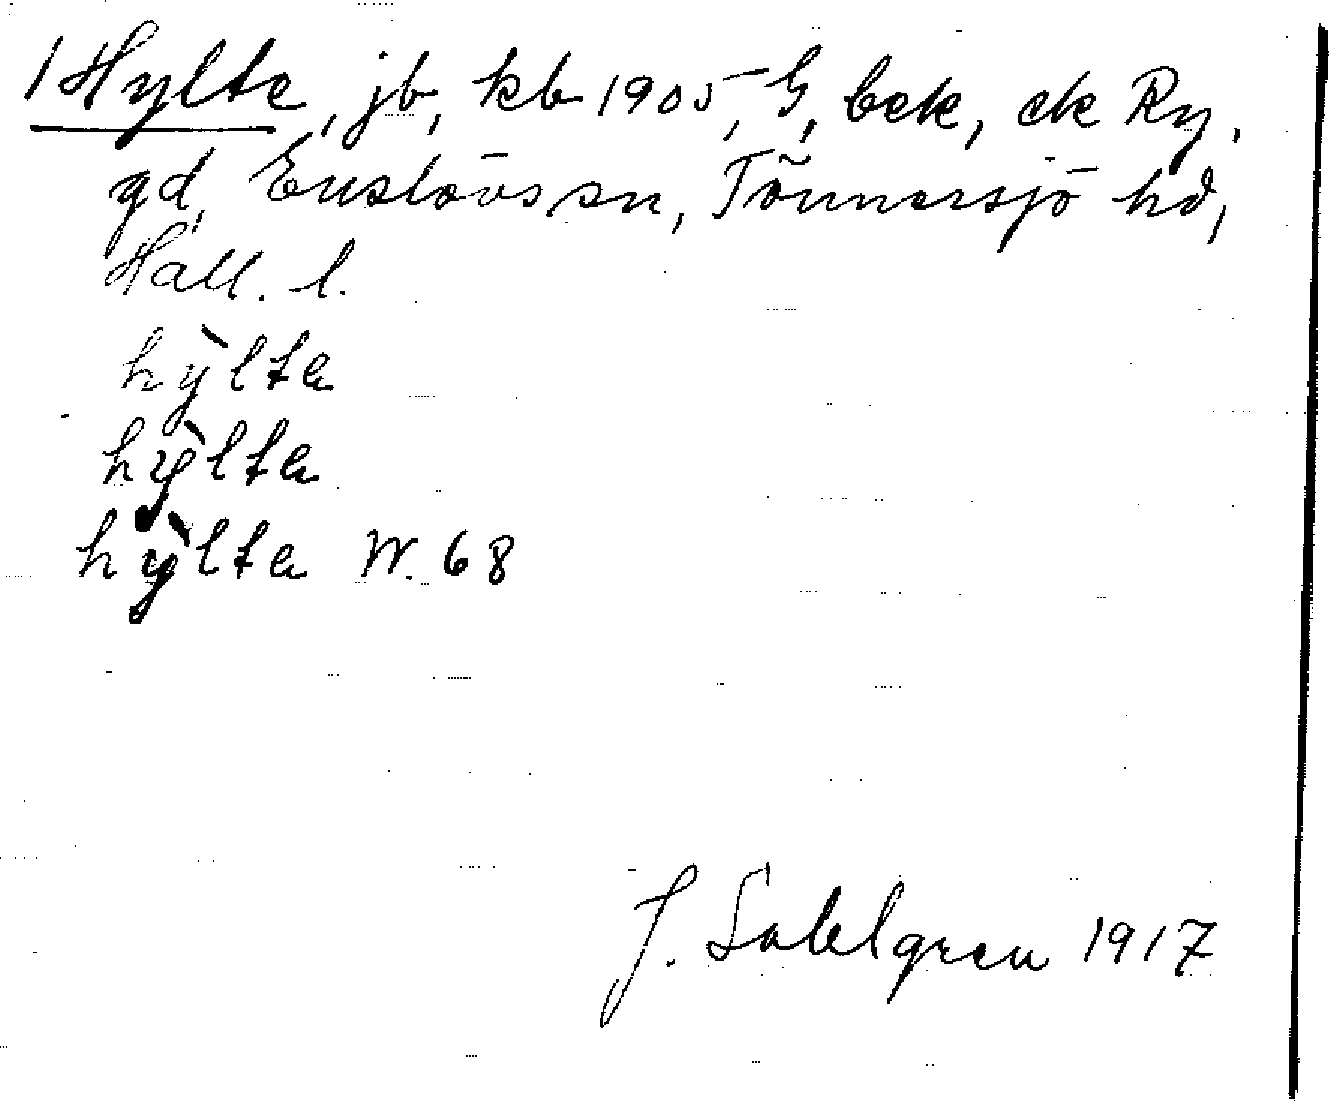 1 Hylte, jb, kb 1905, G, bek, ek Ry,
gd, Enslövs sn, Tönnersjö hd,
Hall. l.
hỳlta
hỳlta
hỳlta W. 68
J. Sahlgren 1917